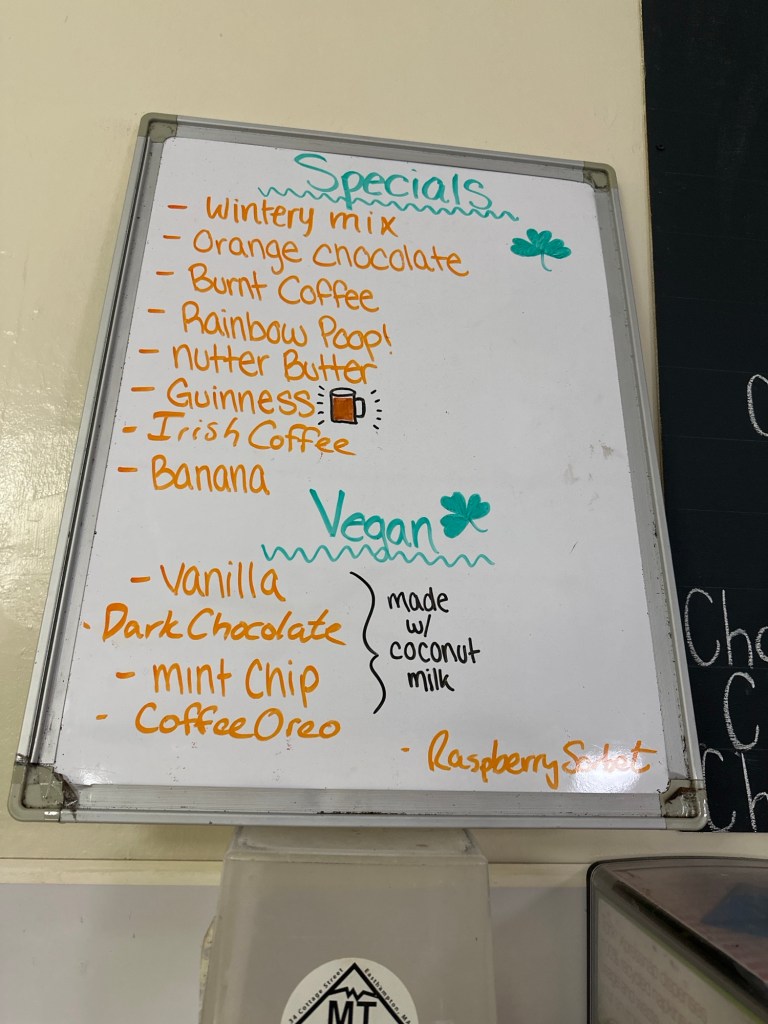 Specials
- Wintery mix
- Orange chocolate
- Burnt Coffee
- Rainbow Poop!
- nutter Butter
- Guinness
- Irish Coffee
- Banana
Vegan
- Vanilla
- Dark Chocolate
- mint Chip
- Coffee Oreo
made
w/
coconut
milk
- Raspberry Sorbet
34 Cottage Street Easthampton, MA
MT